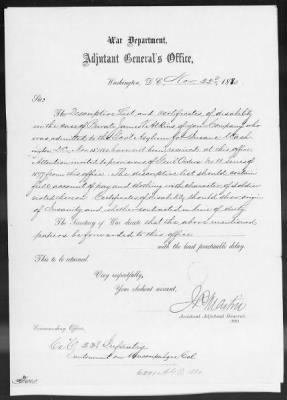 War Department,
Adjutant General's Office,
Washington, D.C. Nov 22d 1880
Sir:
The Descriptive List and Certificates of disability
in the case of Private James Atkins of your Company who
was admitted to the Gov't Asylum for Insane Wash
ington D.C. Nov 15 1880 have not been received at this office
Attention invited to provisions of Gen'l Orders No. 11 Series of
1877 from this office. The descriptive list should contain
full account of pay and clothing with character of soldier
noted thereon. Certificates of disability should show origin
of Insanity and whether contracted in line of duty.
The Secretary of War directs that the above mentioned
papers be forwarded to this office
with the least practicable delay.
This to be returned.
Very respectfully,
Your obedient servant,
Assistant Adjutant General.
Commanding Officer,
Co. C 23d Infantry
Cantonment on Uncompahgre Col.